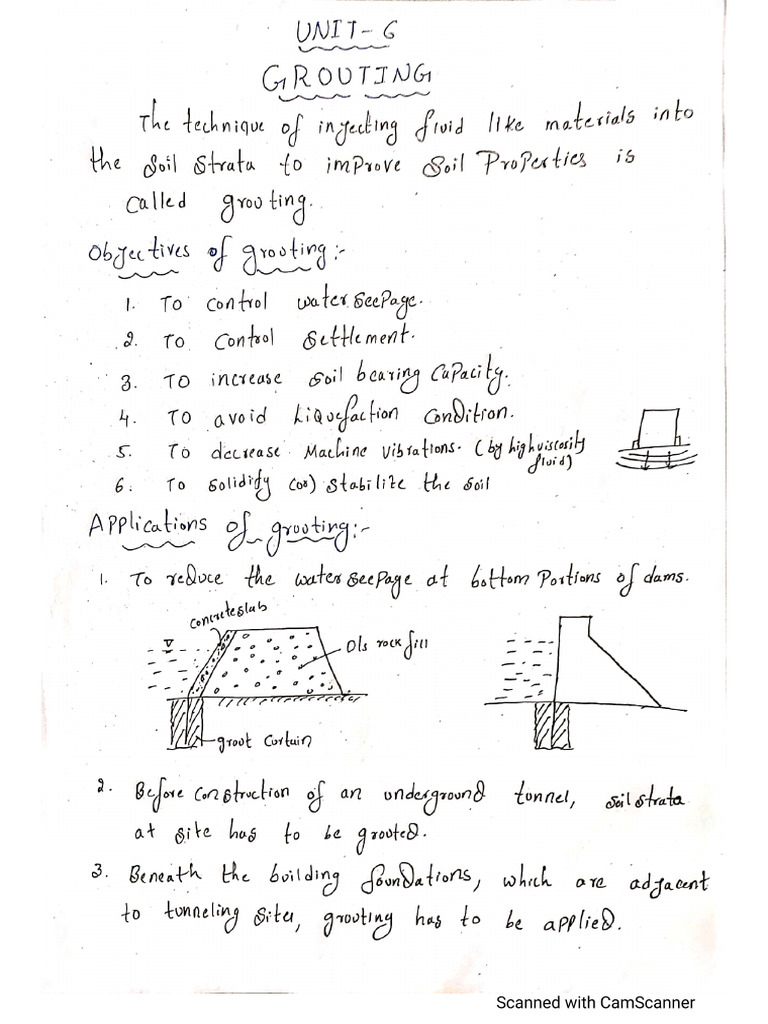 UNIT-6
GROUTING
The technique of injecting fluid like materials into
the soil strata to improve soil properties is
called grouting.
Objectives of grouting:-
1. To control water seepage.
2. To control settlement.
3. To increase soil bearing capacity.
4. To avoid Liquefaction condition.
5. To decrease Machine vibrations. (by high viscosity
fluid)
6. To solidify (or) stabilize the soil
Applications of grouting:-
1. To reduce the water seepage at bottom portions of dams.
concrete slab
D/s rock fill
grout curtain
2. Before construction of an underground tunnel, soil strata
at site has to be grouted.
3. Beneath the building foundations, which are adjacent
to tunneling sites, grouting has to be applied.
Scanned with CamScanner